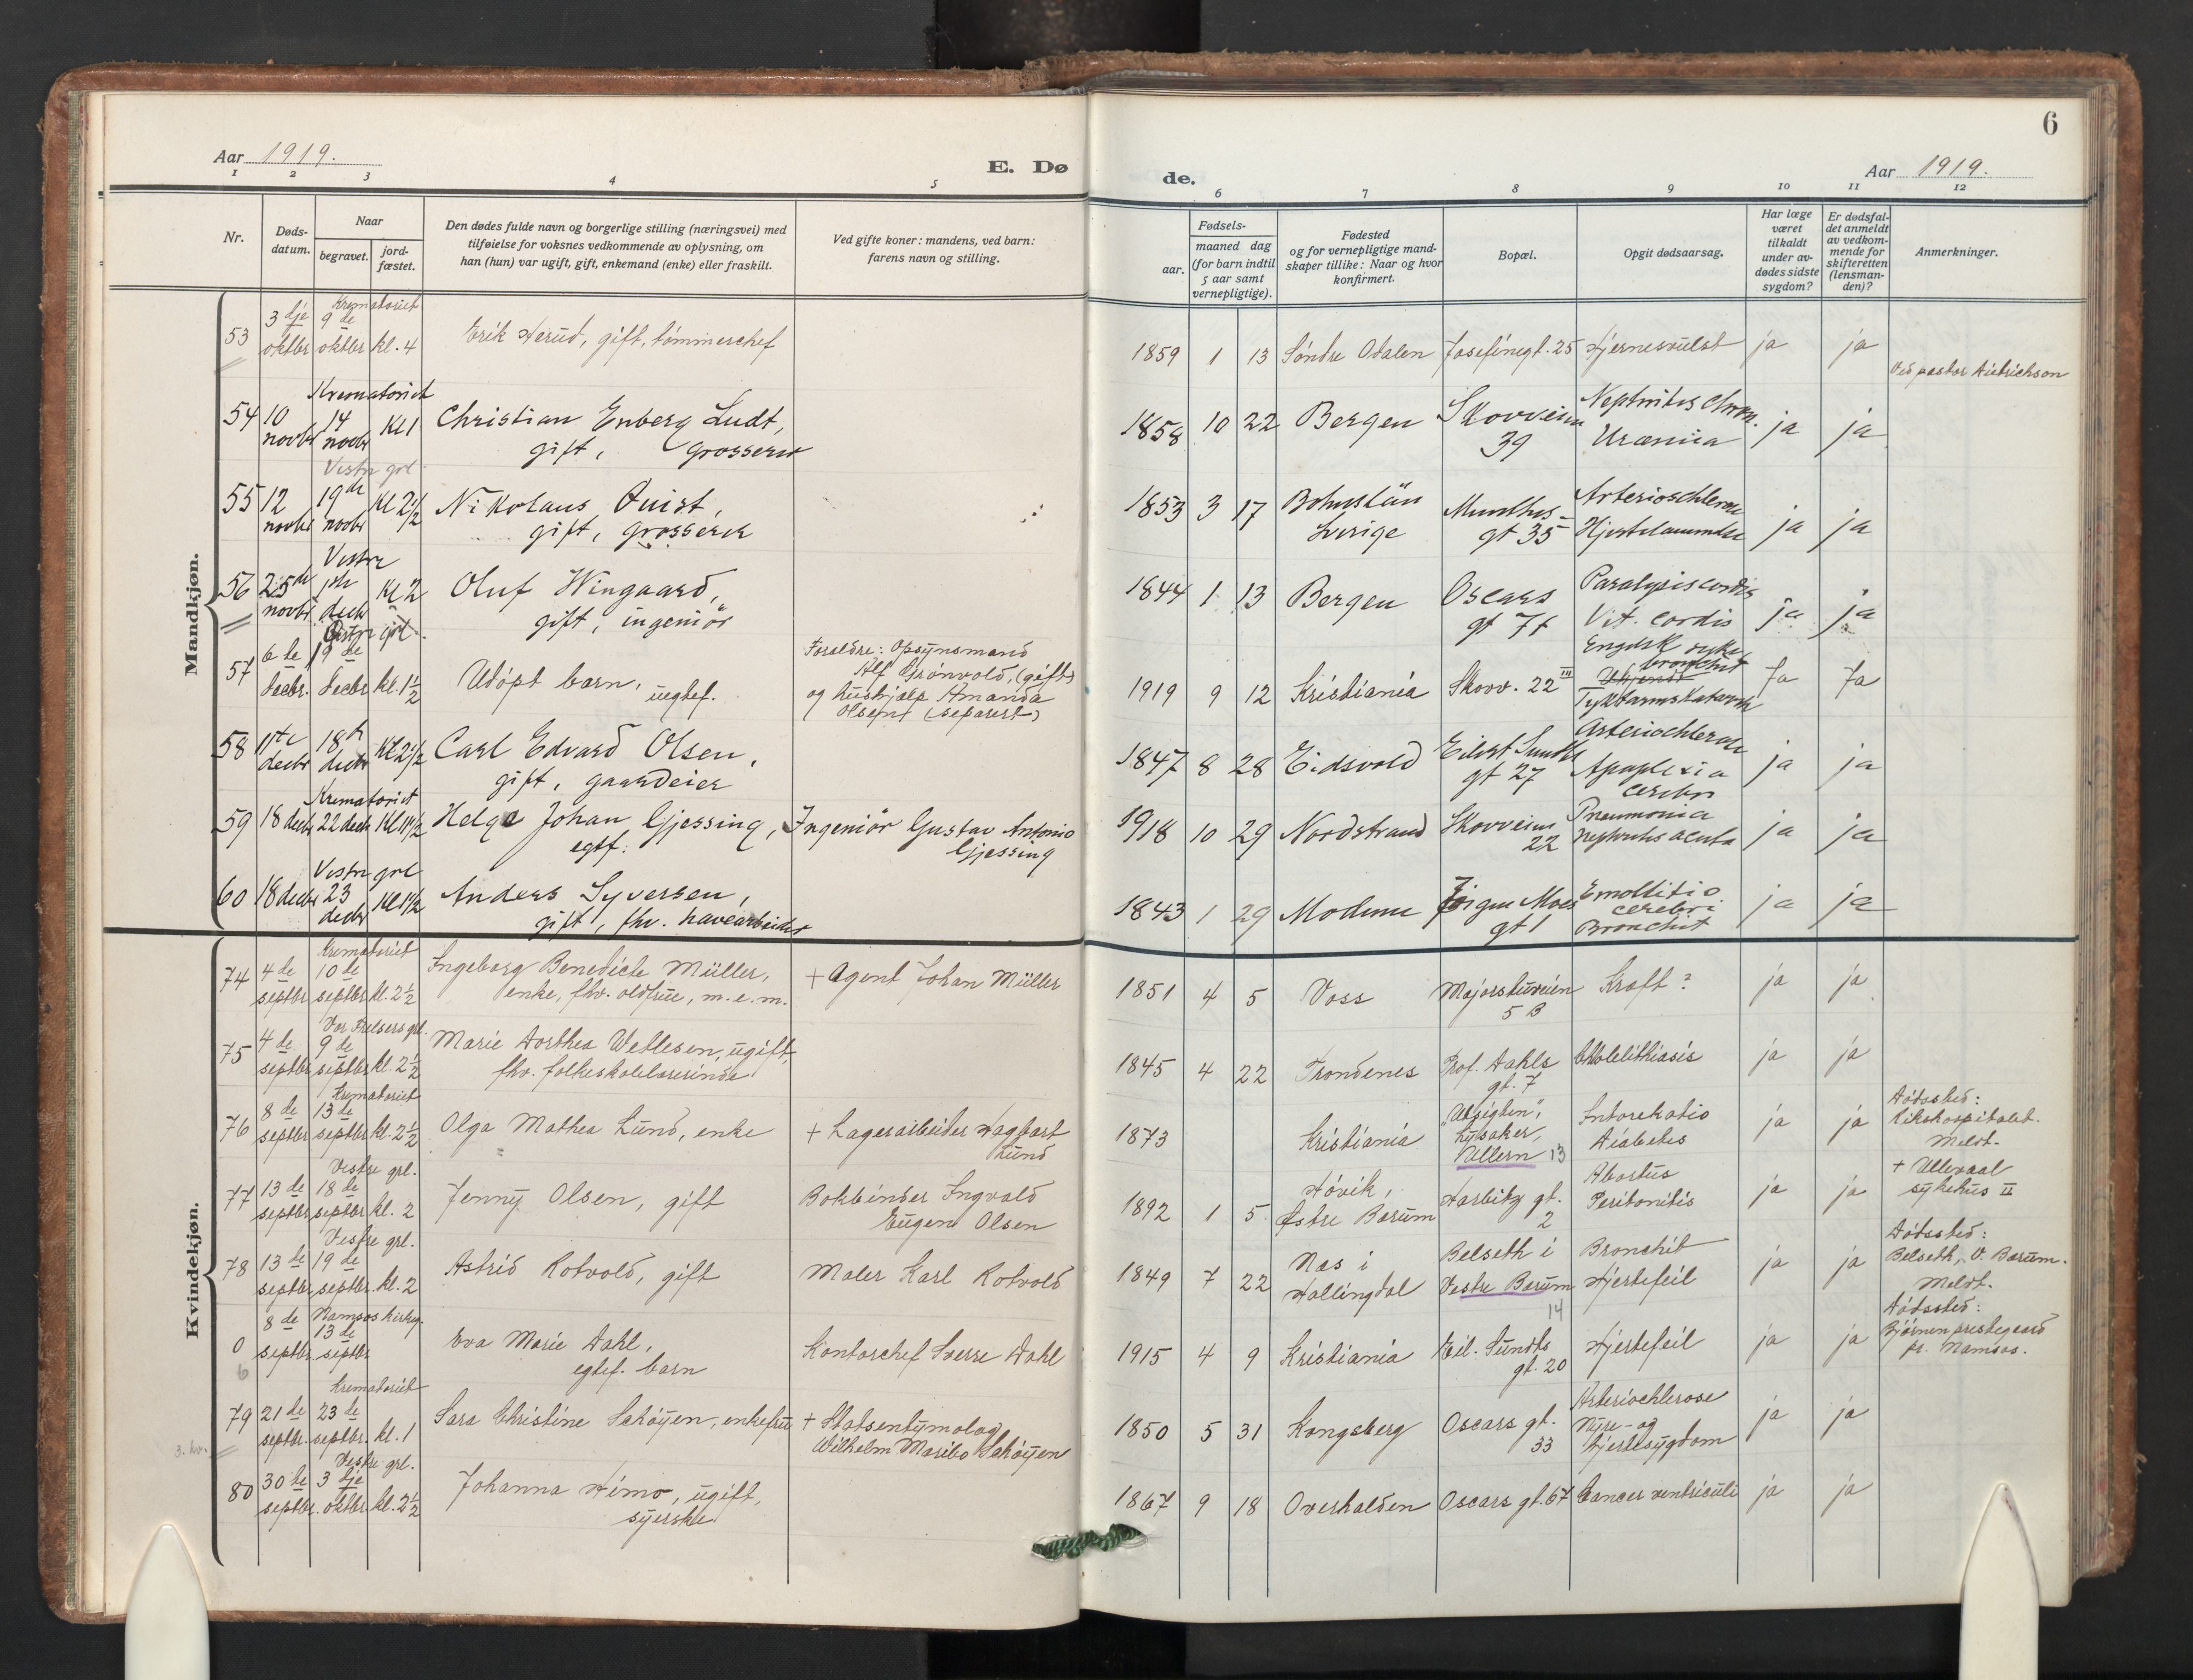 6
Aar 1919.
E. Dø
de.
Aar 1919.
1 2 3 4 5
6 7 8 9 10 11 12
Nr.
Døds-
datum.
Naar
begravet.
jord-
fæstet.
Den dødes fulde navn og borgerlige stilling (næringsvei) med
tilføielse for voksnes vedkommende av oplysning, om
han (hun) var ugift, gift, enkemand (enke) eller fraskilt.
Ved gifte koner: mandens, ved barn:
farens navn og stilling.
Fødsels-
aar.
maaned dag
(for barn indtil
5 aar samt
vernepligtige).
Fødested
og for vernepligtige mand-
skaper tillike: Naar og hvor
konfirmert.
Bopæl.
Opgit dødsaarsag.
Har læge
været
tilkaldt
under av-
dødes sidste
sygdom?
Er dødsfal-
det anmeldt
av vedkom-
mende for
skifteretten
(lensman-
den)?
Anmerkninger.
Mandkjøn.
Krematoriet
53 3 dje oktbr 9 de oktbr kl. 4 Erik Herud, gift, tømmerchef
1859 1 13 Søndre Odalen Josefinegt. 25 Hjernesvulst ja ja
Ved pastor Didrichson
Krematoriet
54 10 novbr 14 novbr Kl 1 Christian Enberg Ludt,
gift, grosserer
1858 10 22 Bergen Skovveien 39 Nephritis chron. Uræmia ja ja
Vestre grl.
55 12 novbr 19de novbr Kl 2 1/2 Nikolaus Quist,
gift, grosserer
1853 3 17 Bohuslän Sverige Munthes-gt 35 ja ja
Vestre
56 25de novbr decbr Kl 2 Oluf Wingaard,
gift, ingeniör
1844 1 13 Bergen Oscars gt 71 Paralysis cordis Vit. cordis ja ja
Vestre grl.
57 6 te decbr. 19 de decbr kl. 1 1/2 Udøpt barn, uegtef.
Foreldre: Opsynsmand
Alf Grønvold, (gift)
og hushjælp Amanda
Olsen (separert)
1919 9 12 Kristiania Skovv. 22 III Engelsk syke, bronchit Tyktarmskatarrh Ja Ja
58 11te decbr 18de decbr Kl 2 1/2 Carl Edvard Olsen,
gift, gaardeier
1847 8 28 Eidsvold Eilert Sundts gt 27 Apoplexia cerebri ja ja
Krematoriet
59 18 decbr 22 decbr Kl 11 1/2 Helge Johan Gjessing,
egtf.
Ingeniör Gustav Antonio
Gjessing
1918 10 29 Nordstrand Skovveien 22 Pneumonia Nephritis acuta ja ja
Vestre grl
60 18 decbr 23 decbr Kl 1 1/2 Anders Syversen,
gift, fhv. havearbeider
1843 1 29 Modum Jørgen Moes gt 1 Emollitio cerebri Bronchit ja ja
Kvindekjøn.
Krematoriet
74 4 de septbr 10 de septbr kl. 2 1/2 Ingeborg Benedicte Müller,
enke, fhv. oldfrue, m. e. m.
+ Agent Johan Müller
1851 4 5 Voss Majorstuveien 5 B Kræft? ja ja
Vor Frelsers grl.
75 4 de septbr 9 de septbr kl. 2 1/2 Marie Dorthea Wetlesen, ugift,
fhv. folkeskolelærerinde
1845 4 22 Trondenes Prof. Dahls gt. 7 Cholelithiasis ja ja
Krematoriet
76 8 de septbr 13 de septbr kl. 2 1/2 Olga Mathea Lund, enke
+ Lagerarbeider Dagfart
Lund
1873 Kristiania "Utsigten", Lysaker, Ullern 13 Intoxikatio Diabetes ja ja
Dødssted:
Rikshospitalet.
Meldt.
Vestre grl.
77 13 de septbr 18 de septbr kl. 2 Jenny Olsen, gift
Bokbinder Ingvald
Eugen Olsen
1892 1 5 Høvik, Østre Bærum Harbitz gt. 2 Abortus Peritonitis ja ja
+ Ullevaal
sykehus II
Vestre grl.
78 13 de septbr 19 de septbr. kl. 2 Astrid Rotvold, gift
Maler Karl Rotvold
1849 7 22 Nes i Hallingdal Belseth i Vestre Bærum 14 Bronchit Hjertefeil ja ja
Dødssted:
Belseth, V. Bærum.
Meldt.
Namsos kirkeg.
0 8 de septbr. 13 de septbr Eva Marie Dahl,
egtef. barn
Kontorchef Sverre Dahl
1915 4 9 Kristiania Eil. Sundts gt. 20 Hjertefeil ja ja
Dødssted:
Bjørnen prestegaard
pr. Namsos.
6
Krematoriet
79 21 de septbr. 23 de septbr. kl. 1 Sara Christine Schøyen, enkefrue
+ Statsentymolog
Wilhelm Maribo Schøyen
1850 5 31 Kongsberg Oscars gt. 33 Arteriochlerose Nyre- og Hjertesygdom ja ja
Vestre grl.
80 30 te septbr. 3 dje oktbr. kl. 2 1/2 Johanna Himo, ugift,
syerske
1867 9 18 Overhalden Oscars gt. 67 Cancer ventriculi ja ja